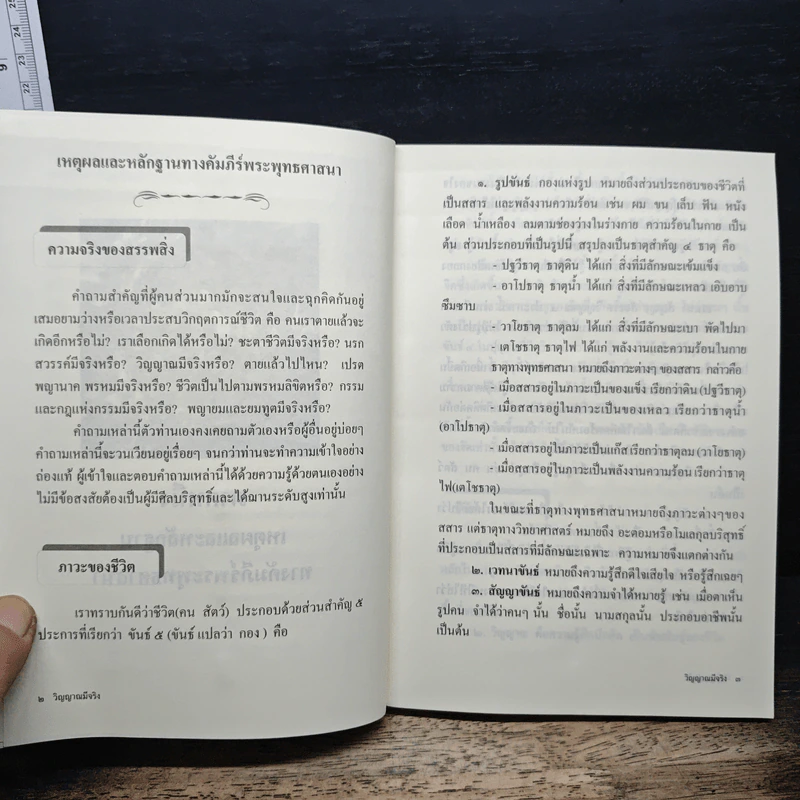 เหตุผลและหลักฐานทางคัมภีร์พระพุทธศาสนา
ความจริงของสรรพสิ่ง
คำถามสำคัญที่ผู้คนส่วนมากมักจะสนใจและฉุกคิดกันอยู่
เสมอยามว่างหรือเวลาประสบวิกฤตการณ์ชีวิต คือ คนเราตายแล้วจะ
เกิดอีกหรือไม่? เราเลือกเกิดได้หรือไม่? ชะตาชีวิตมีจริงหรือ? นรก
สวรรค์มีจริงหรือ? วิญญาณมีจริงหรือ? ตายแล้วไปไหน? เปรต
พญานาค พรหมมีจริงหรือ? ชีวิตเป็นไปตามพรหมลิขิตหรือ? กรรม
และกฎแห่งกรรมมีจริงหรือ? พญายมและยมทูตมีจริงหรือ?
คำถามเหล่านี้ตัวท่านเองคงเคยถามตัวเองหรือผู้อื่นอยู่บ่อยๆ
คำถามเหล่านี้จะวนเวียนอยู่เรื่อยๆ จนกว่าท่านจะทำความเข้าใจอย่าง
ถ่องแท้ ผู้เข้าใจและตอบคำถามเหล่านี้ได้ด้วยความรู้ด้วยตนเองอย่าง
ไม่มีข้อสงสัยต้องเป็นผู้มีศีลบริสุทธิ์และได้ฌานระดับสูงเท่านั้น
ภาวะของชีวิต
เราทราบกันดีว่าชีวิต(คน สัตว์) ประกอบด้วยส่วนสำคัญ ๕
ประการที่เรียกว่า ขันธ์ ๕ (ขันธ์ แปลว่า กอง ) คือ
๒ วิญญาณมีจริง
๑. รูปขันธ์ กองแห่งรูป หมายถึงส่วนประกอบของชีวิตที่
เป็นสสาร และพลังงานความร้อน เช่น ผม ขน เล็บ ฟัน หนัง
เลือด น้ำเหลือง ลมตามช่องว่างในร่างกาย ความร้อนในกาย เป็น
ต้น ส่วนประกอบที่เป็นรูปนี้ สรุปลงเป็นธาตุสำคัญ ๔ ธาตุ คือ
- ปฐวีธาตุ ธาตุดิน ได้แก่ สิ่งที่มีลักษณะเข้มแข็ง
- อาโปธาตุ ธาตุน้ำ ได้แก่ สิ่งที่มีลักษณะเหลว เอิบอาบ
ซึมซาบ
- วาโยธาตุ ธาตุลม ได้แก่ สิ่งที่มีลักษณะเบา พัดไปมา
- เตโชธาตุ ธาตุไฟ ได้แก่ พลังงานและความร้อนในกาย
ธาตุทางพุทธศาสนา หมายถึงภาวะต่างๆ ของสสาร กล่าวคือ
- เมื่อสสารอยู่ในภาวะเป็นของแข็ง เรียกว่าดิน (ปฐวีธาตุ)
- เมื่อสสารอยู่ในภาวะเป็นของเหลว เรียกว่าธาตุน้ำ
(อาโปธาตุ)
- เมื่อสสารอยู่ในภาวะเป็นแก๊ส เรียกว่าธาตุลม (วาโยธาตุ)
- เมื่อสสารอยู่ในภาวะเป็นพลังงานความร้อน เรียกว่าธาตุ
ไฟ(เตโชธาตุ)
ในขณะที่ธาตุทางพุทธศาสนาหมายถึงภาวะต่างๆของ
สสาร แต่ธาตุทางวิทยาศาสตร์ หมายถึง อะตอมหรือโมเลกุลบริสุทธิ์
ที่ประกอบเป็นสสารที่มีลักษณะเฉพาะ ความหมายจึงแตกต่างกัน
๒. เวทนาขันธ์ หมายถึงความรู้สึกดีใจเสียใจ หรือรู้สึกเฉยๆ
๓. สัญญาขันธ์ หมายถึงความจำได้หมายรู้ เช่น เมื่อตาเห็น
รูปคน จำได้ว่าคนๆ นั้น ชื่อนั้น นามสกุลนั้น ประกอบอาชีพนั้น
เป็นต้น
วิญญาณมีจริง ๓